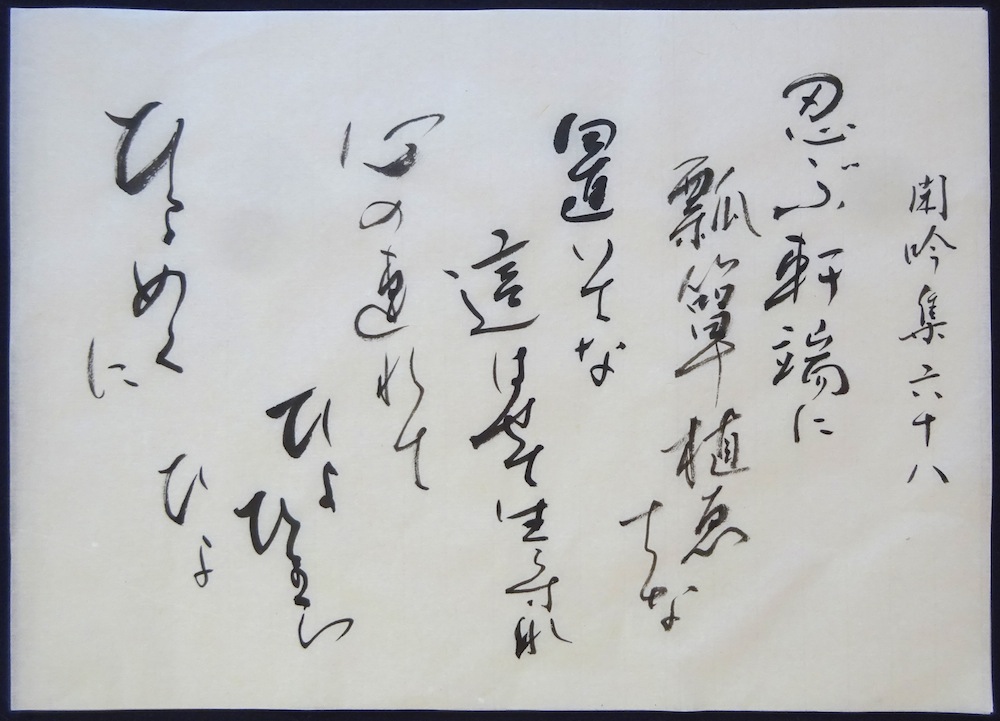 閑吟集六十八
忍ぶ軒端に
瓢箪植ゑ
てな
置いてな
這はせて生らすな
心の連れて
ひよひよら
ひよ
ひよめく
に